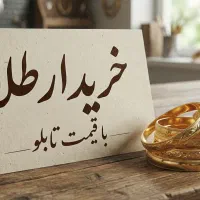 خریدار طل
با قیمت تابلو